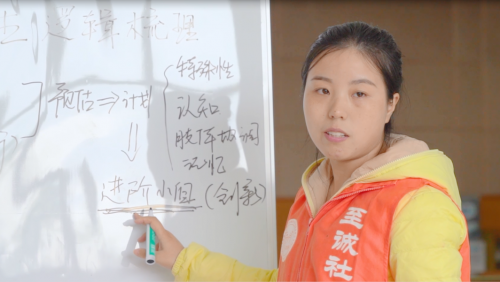 逻辑梳理
预估⇒计划
特殊性
认知
肢体协调
记忆
⇓
进阶小组(创新)
至诚社